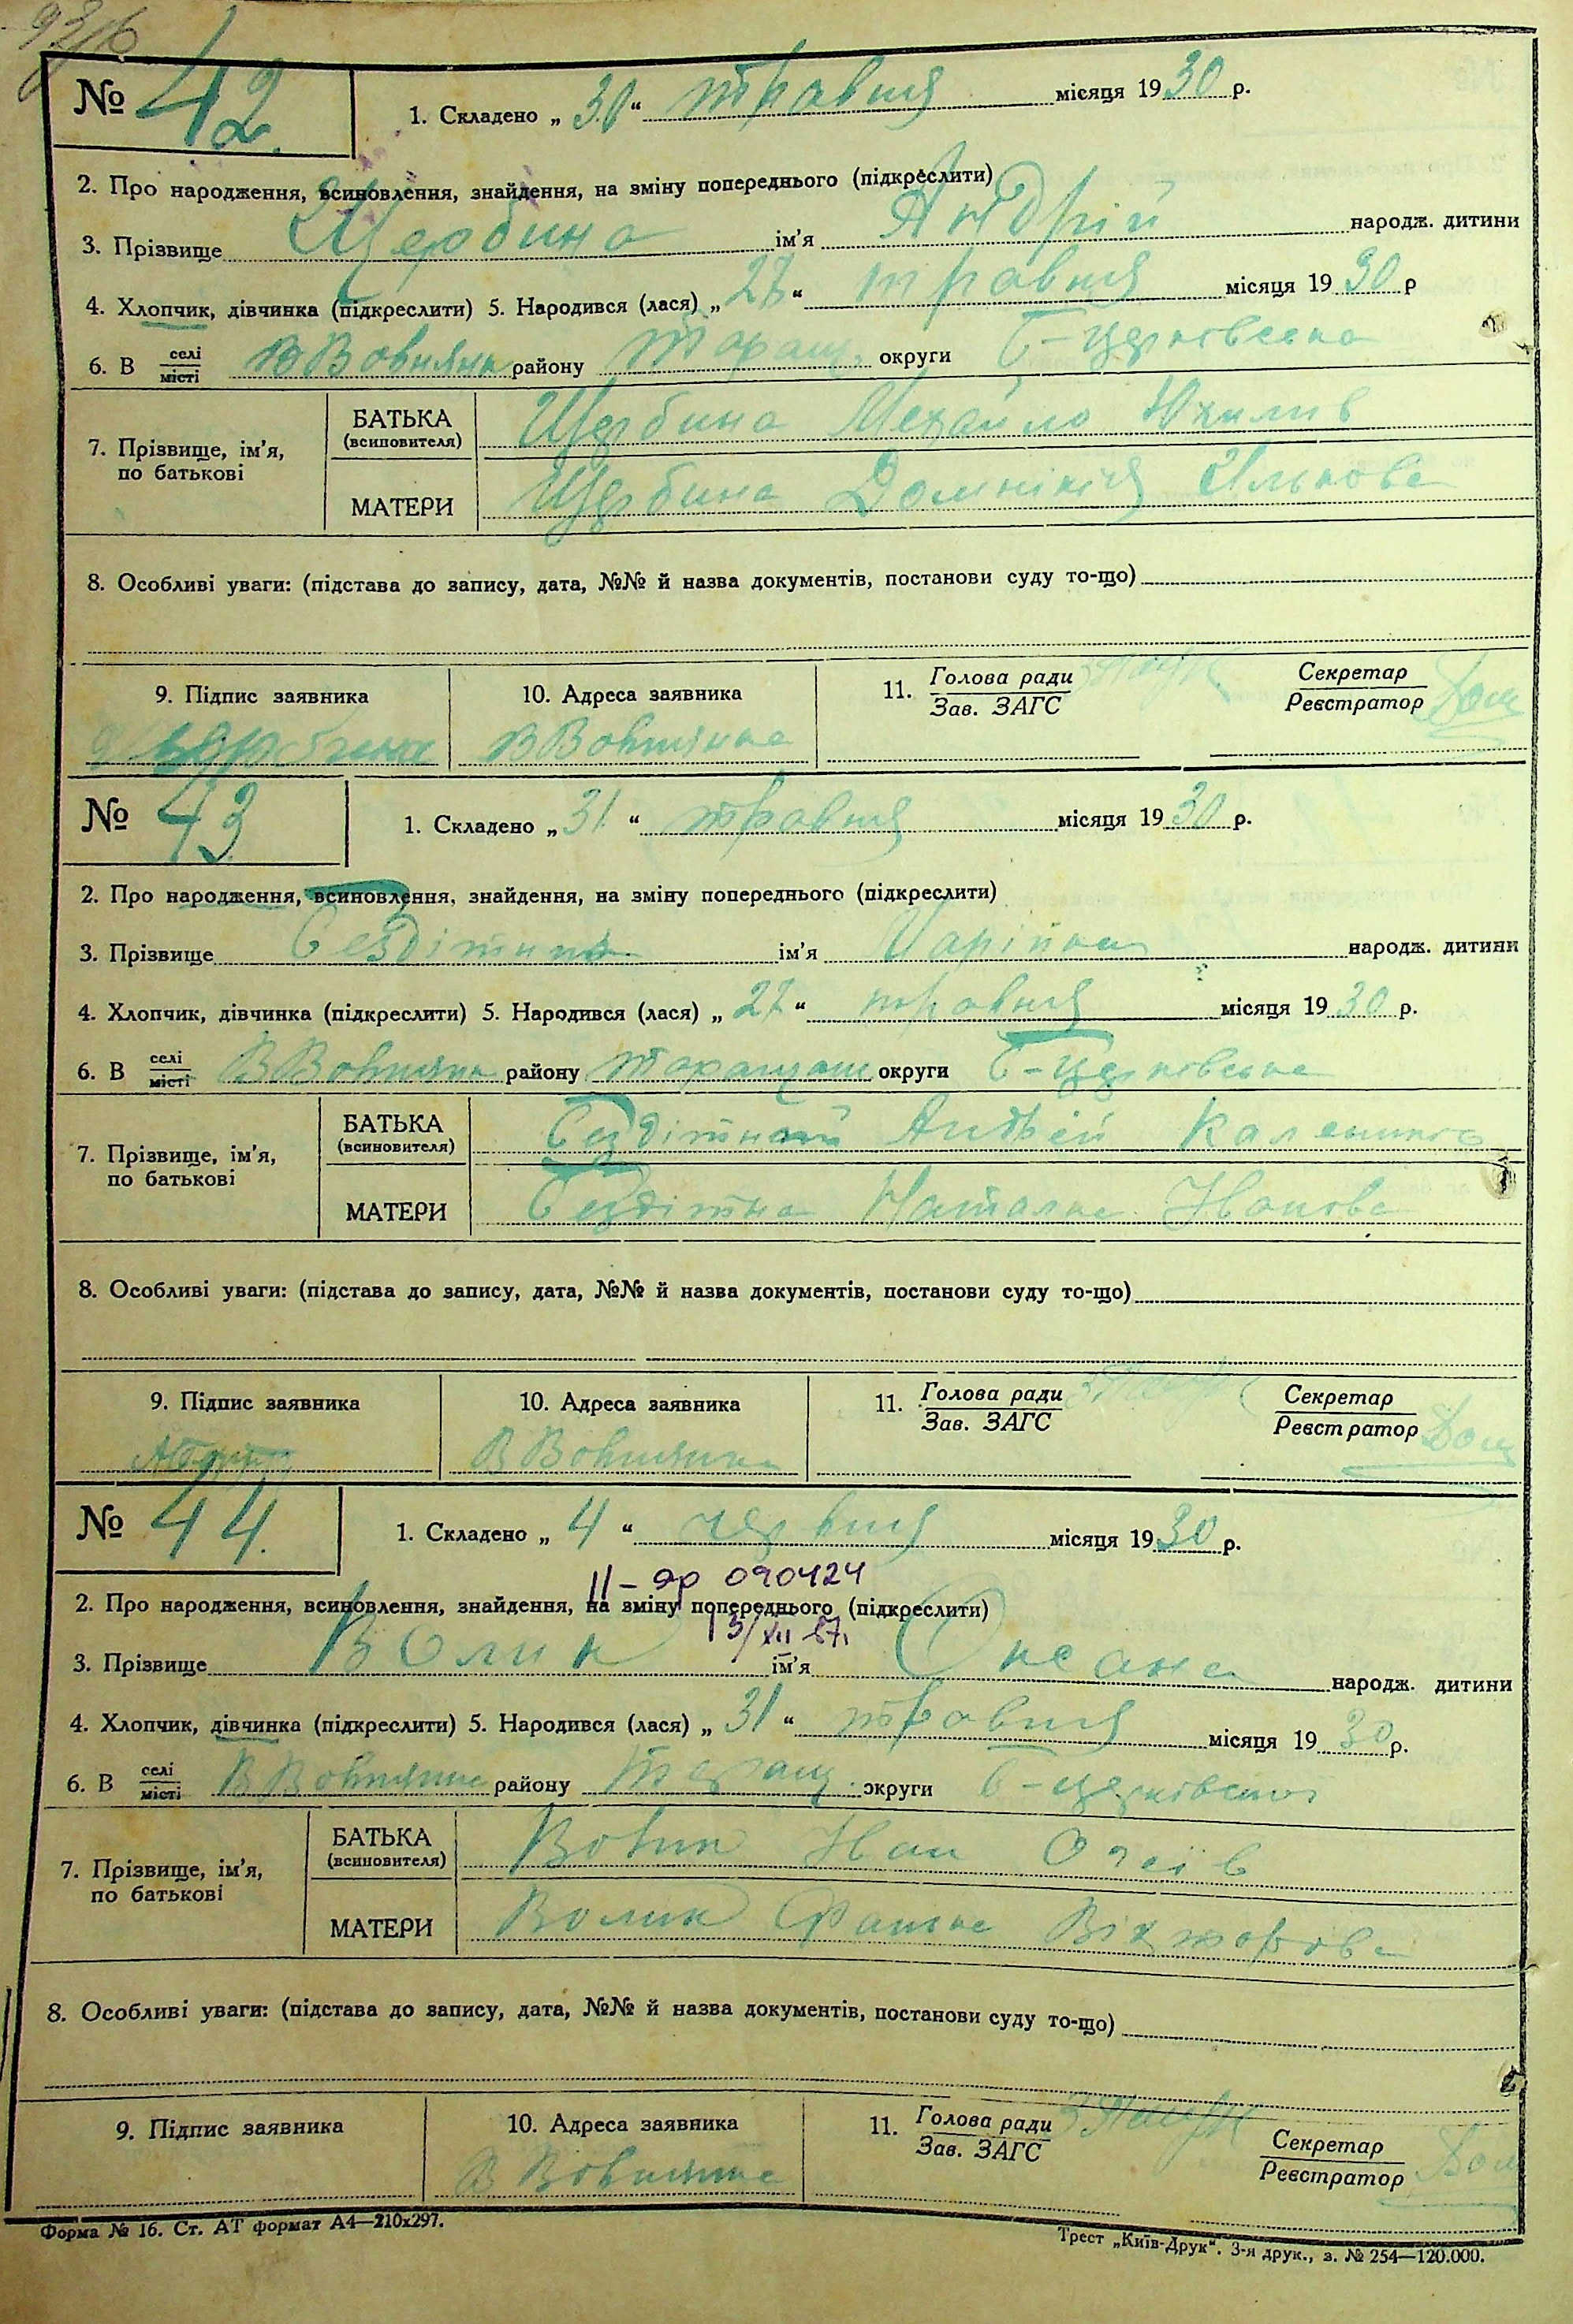 № 42. 1. Складено „ 30 “ травня місяця 1930 р.
2. Про народження, всиновлення, знайдення, на зміну попереднього (підкреслити)
3. Прізвище Щербина ім'я Андрій народж. дитини
4. Хлопчик, дівчинка (підкреслити) 5. Народився (лася) „ 27 “ травня місяця 1930 р
6. В селі місті В Вовнянк району Таращ. округи Б-Церковська
7. Прізвище, ім'я, по батькові
БАТЬКА (всиновителя) Щербина Михайло
МАТЕРИ Щербина Домнікія Ількова
8. Особливі уваги: (підстава до запису, дата, №№ й назва документів, постанови суду то-що)
9. Підпис заявника 10. Адреса заявника 11. Голова ради Зав. ЗАГС Секретар Реєстратор
Щербина В Вовнянка
№ 43. 1. Складено „ 31 “ травня місяця 1930 р.
2. Про народження, всиновлення, знайдення, на зміну попереднього (підкреслити)
3. Прізвище Бездітний ім'я народж. дитини
4. Хлопчик, дівчинка (підкреслити) 5. Народився (лася) „ 27 “ травня місяця 1930 р.
6. В селі місті В Вовнянк району Таращан округи Б-Церковська
7. Прізвище, ім'я, по батькові
БАТЬКА (всиновителя) Бездітний Андрій
МАТЕРИ Бездітна Наталка Іванова
8. Особливі уваги: (підстава до запису, дата, №№ й назва документів, постанови суду то-що)
9. Підпис заявника 10. Адреса заявника 11. Голова ради Зав. ЗАГС Секретар Реєстратор
В Вовнянка
№ 44. 1. Складено „ 4 “ червня місяця 1930 р.
II-яр 090424
2. Про народження, всиновлення, знайдення, на зміну попереднього (підкреслити)
3. Прізвище Волик ім'я Оксана народж. дитини
4. Хлопчик, дівчинка (підкреслити) 5. Народився (лася) „ 31 “ травня місяця 1930 р.
6. В селі місті В Вовнянка району Таращ. округи Б-церківської
7. Прізвище, ім'я, по батькові
БАТЬКА (всиновителя) Волик Іван
МАТЕРИ Волик Вікторова
8. Особливі уваги: (підстава до запису, дата, №№ й назва документів, постанови суду то-що)
9. Підпис заявника 10. Адреса заявника 11. Голова ради Зав. ЗАГС Секретар Реєстратор
В Вовнянка
Форма № 16. Ст. АТ формат А4—210х297. Трест „Київ-Друк“. 3-я друк., з. № 254—120.000.